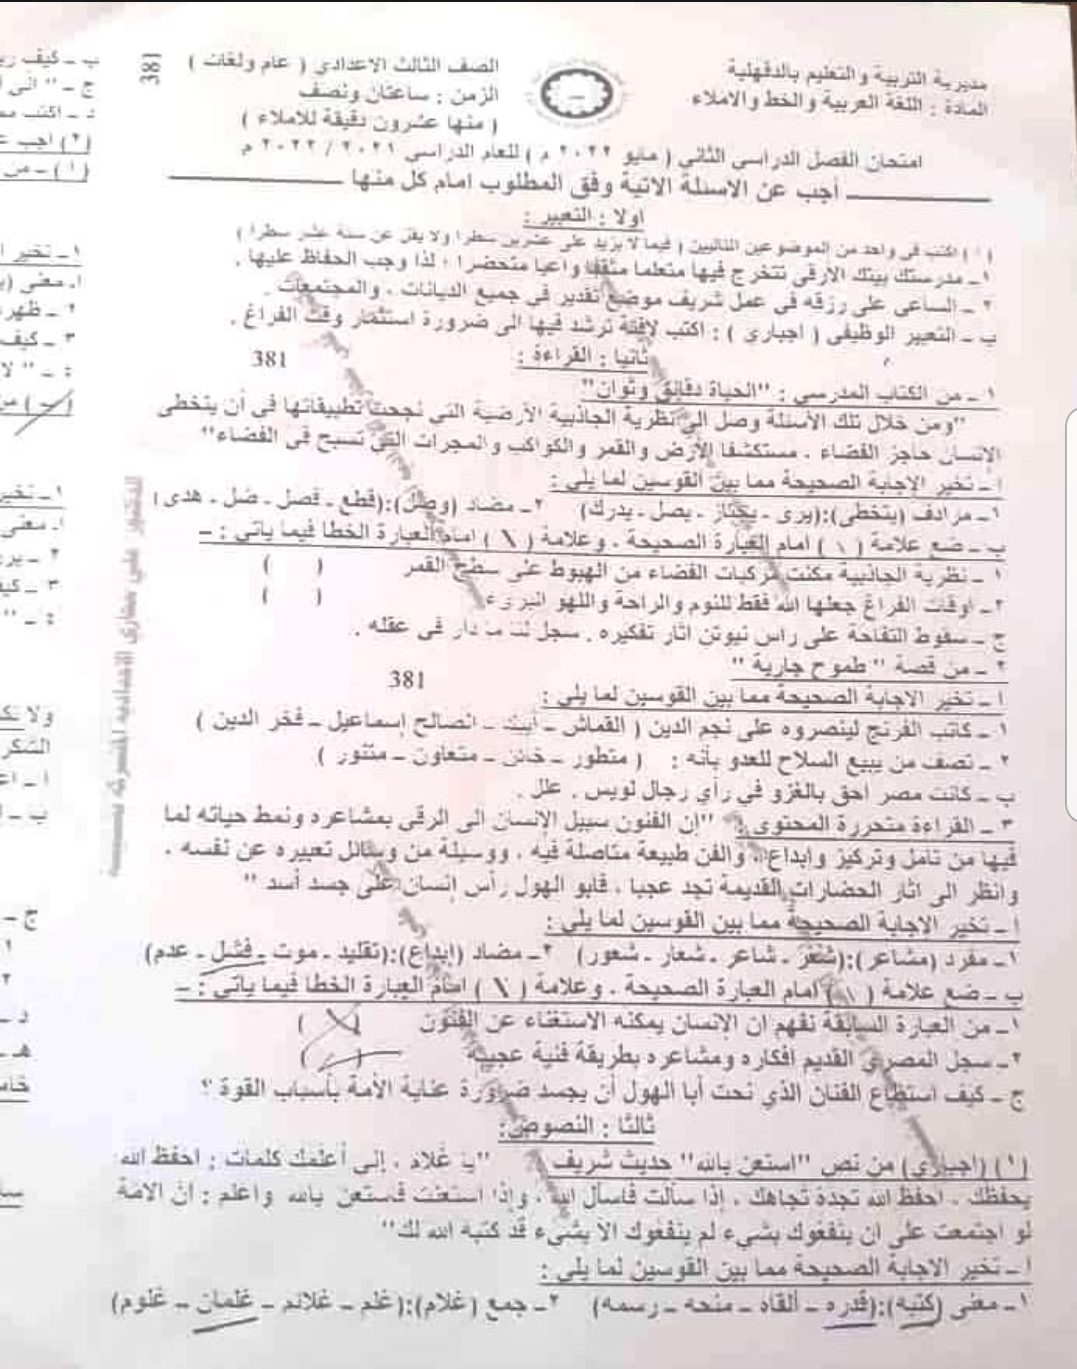 مديرية التربية والتعليم بالدقهلية
المادة : اللغة العربية والخط والاملاء
الصف الثالث الاعدادي ( عام ولغات )
الزمن : ساعتان ونصف
( منها عشرون دقيقة للاملاء )
381
امتحان الفصل الدراسى الثاني ( مايو ٢٠٢٢ م ) للعام الدراسى ٢٠٢١ / ٢٠٢٢ م
أجب عن الاسئلة الاتية وفق المطلوب امام كل منها
اولا : التعبير :
( ١ ) اكتب في واحد من الموضوعين التاليين ( فيما لا يزيد على عشرين سطرا ولا يقل عن ستة عشر سطرا )
١ـ مدرستك بيتك الارقى تتخرج فيها متعلما مثقفا واعيا متحضرا ؛ لذا وجب الحفاظ عليها .
٢ ـ الساعى على رزقه فى عمل شريف موضع تقدير في جميع الديانات . والمجتمعات .
ب ـ التعبير الوظيفى ( اجبارى ) : اكتب لافتة ترشد فيها الى ضرورة استثمار وقت الفراغ .
ثانيا : القراءة :
381
١ ـ من الكتاب المدرسي : "الحياة دقائق وثوان"
"ومن خلال تلك الأسئلة وصل الى نظرية الجاذبية الأرضية التى نجحت تطبيقاتها فى أن يتخطى
الإنسان حاجز الفضاء . مستكشفا الأرض والقمر والكواكب والمجرات التى تسبح فى الفضاء"
ا ـ تخير الإجابة الصحيحة مما بين القوسين لما يلى :
١ـ مرادف (يتخطى):(يرى ـ يجتاز ـ يصل ـ يدرك) ٢ـ مضاد (وصل):(قطع ـ فصل ـ ضل ـ هدى)
ب ـ ضع علامة ( ) امام العبارة الصحيحة . وعلامة ( ) امام العبارة الخطا فيما ياتى : ـ
١ ـ نظرية الجاذبية مكنت مركبات الفضاء من الهبوط على سطح القمر ( )
٢ـ اوقات الفراغ جعلها الله فقط للنوم والراحة واللهو البرىء ( )
ج ـ سقوط التفاحة على راس نيوتن اثار تفكيره . سجل لنا ما دار فى عقله .
٢ ـ من قصة " طموح جارية "
381
ا ـ تخير الاجابة الصحيحة مما بين القوسين لما يلى :
١ ـ كاتب الفرنج لينصروه على نجم الدين ( القماش ـ أيبك ـ الصالح إسماعيل ـ فخر الدين )
٢ ـ تصف من يبيع السلاح للعدو بأنه : ( متطور ـ خائن ـ متعاون ـ متنور )
ب ـ كانت مصر احق بالغزو في رأي رجال لويس . علل .
٣ ـ القراءة متحررة المحتوى : "إن الفنون سبيل الإنسان الى الرقى بمشاعره ونمط حياته لما
فيها من تامل وتركيز وابداع . والفن طبيعة متاصلة فيه . ووسيلة من وسائل تعبيره عن نفسه .
وانظر الى اثار الحضارات القديمة تجد عجبا . فابو الهول رأس إنسان على جسد أسد "
ا ـ تخير الاجابة الصحيحة مما بين القوسين لما يلى :
١ـ مفرد (مشاعر):(شعر ـ شاعر ـ شعار ـ شعور) ٢ـ مضاد (إبداع):(تقليد ـ موت ـ فشل ـ عدم)
ب ـ ضع علامة ( ) امام العبارة الصحيحة . وعلامة ( ) امام العبارة الخطا فيما ياتى : ـ
١ـ من العبارة السابقة نفهم ان الإنسان يمكنه الاستغناء عن الفنون ( )
٢ـ سجل المصرى القديم افكاره ومشاعره بطريقة فنية عجيبة ( )
ج ـ كيف استطاع الفنان الذي نحت أبا الهول أن يجسد ضرورة عناية الأمة بأسباب القوة ؟
ثالثا : النصوص :
(١) (اجبارى) من نص "استعن بالله" حديث شريف "يا غلام ، إنى أعلمك كلمات : احفظ الله
يحفظك ، احفظ الله تجده تجاهك ، إذا سألت فاسأل الله ، وإذا استعنت فاستعن بالله واعلم : ان الامة
لو اجتمعت على ان ينفعوك بشيء لم ينفعوك الا بشيء قد كتبه الله لك"
ا ـ تخير الاجابة الصحيحة مما بين القوسين لما يلى :
١ـ معنى (كتبه):(قدره ـ ألقاه ـ منحه ـ رسمه) ٢ـ جمع (غلام):(غلم ـ غلائم ـ غلمان ـ غلوم)